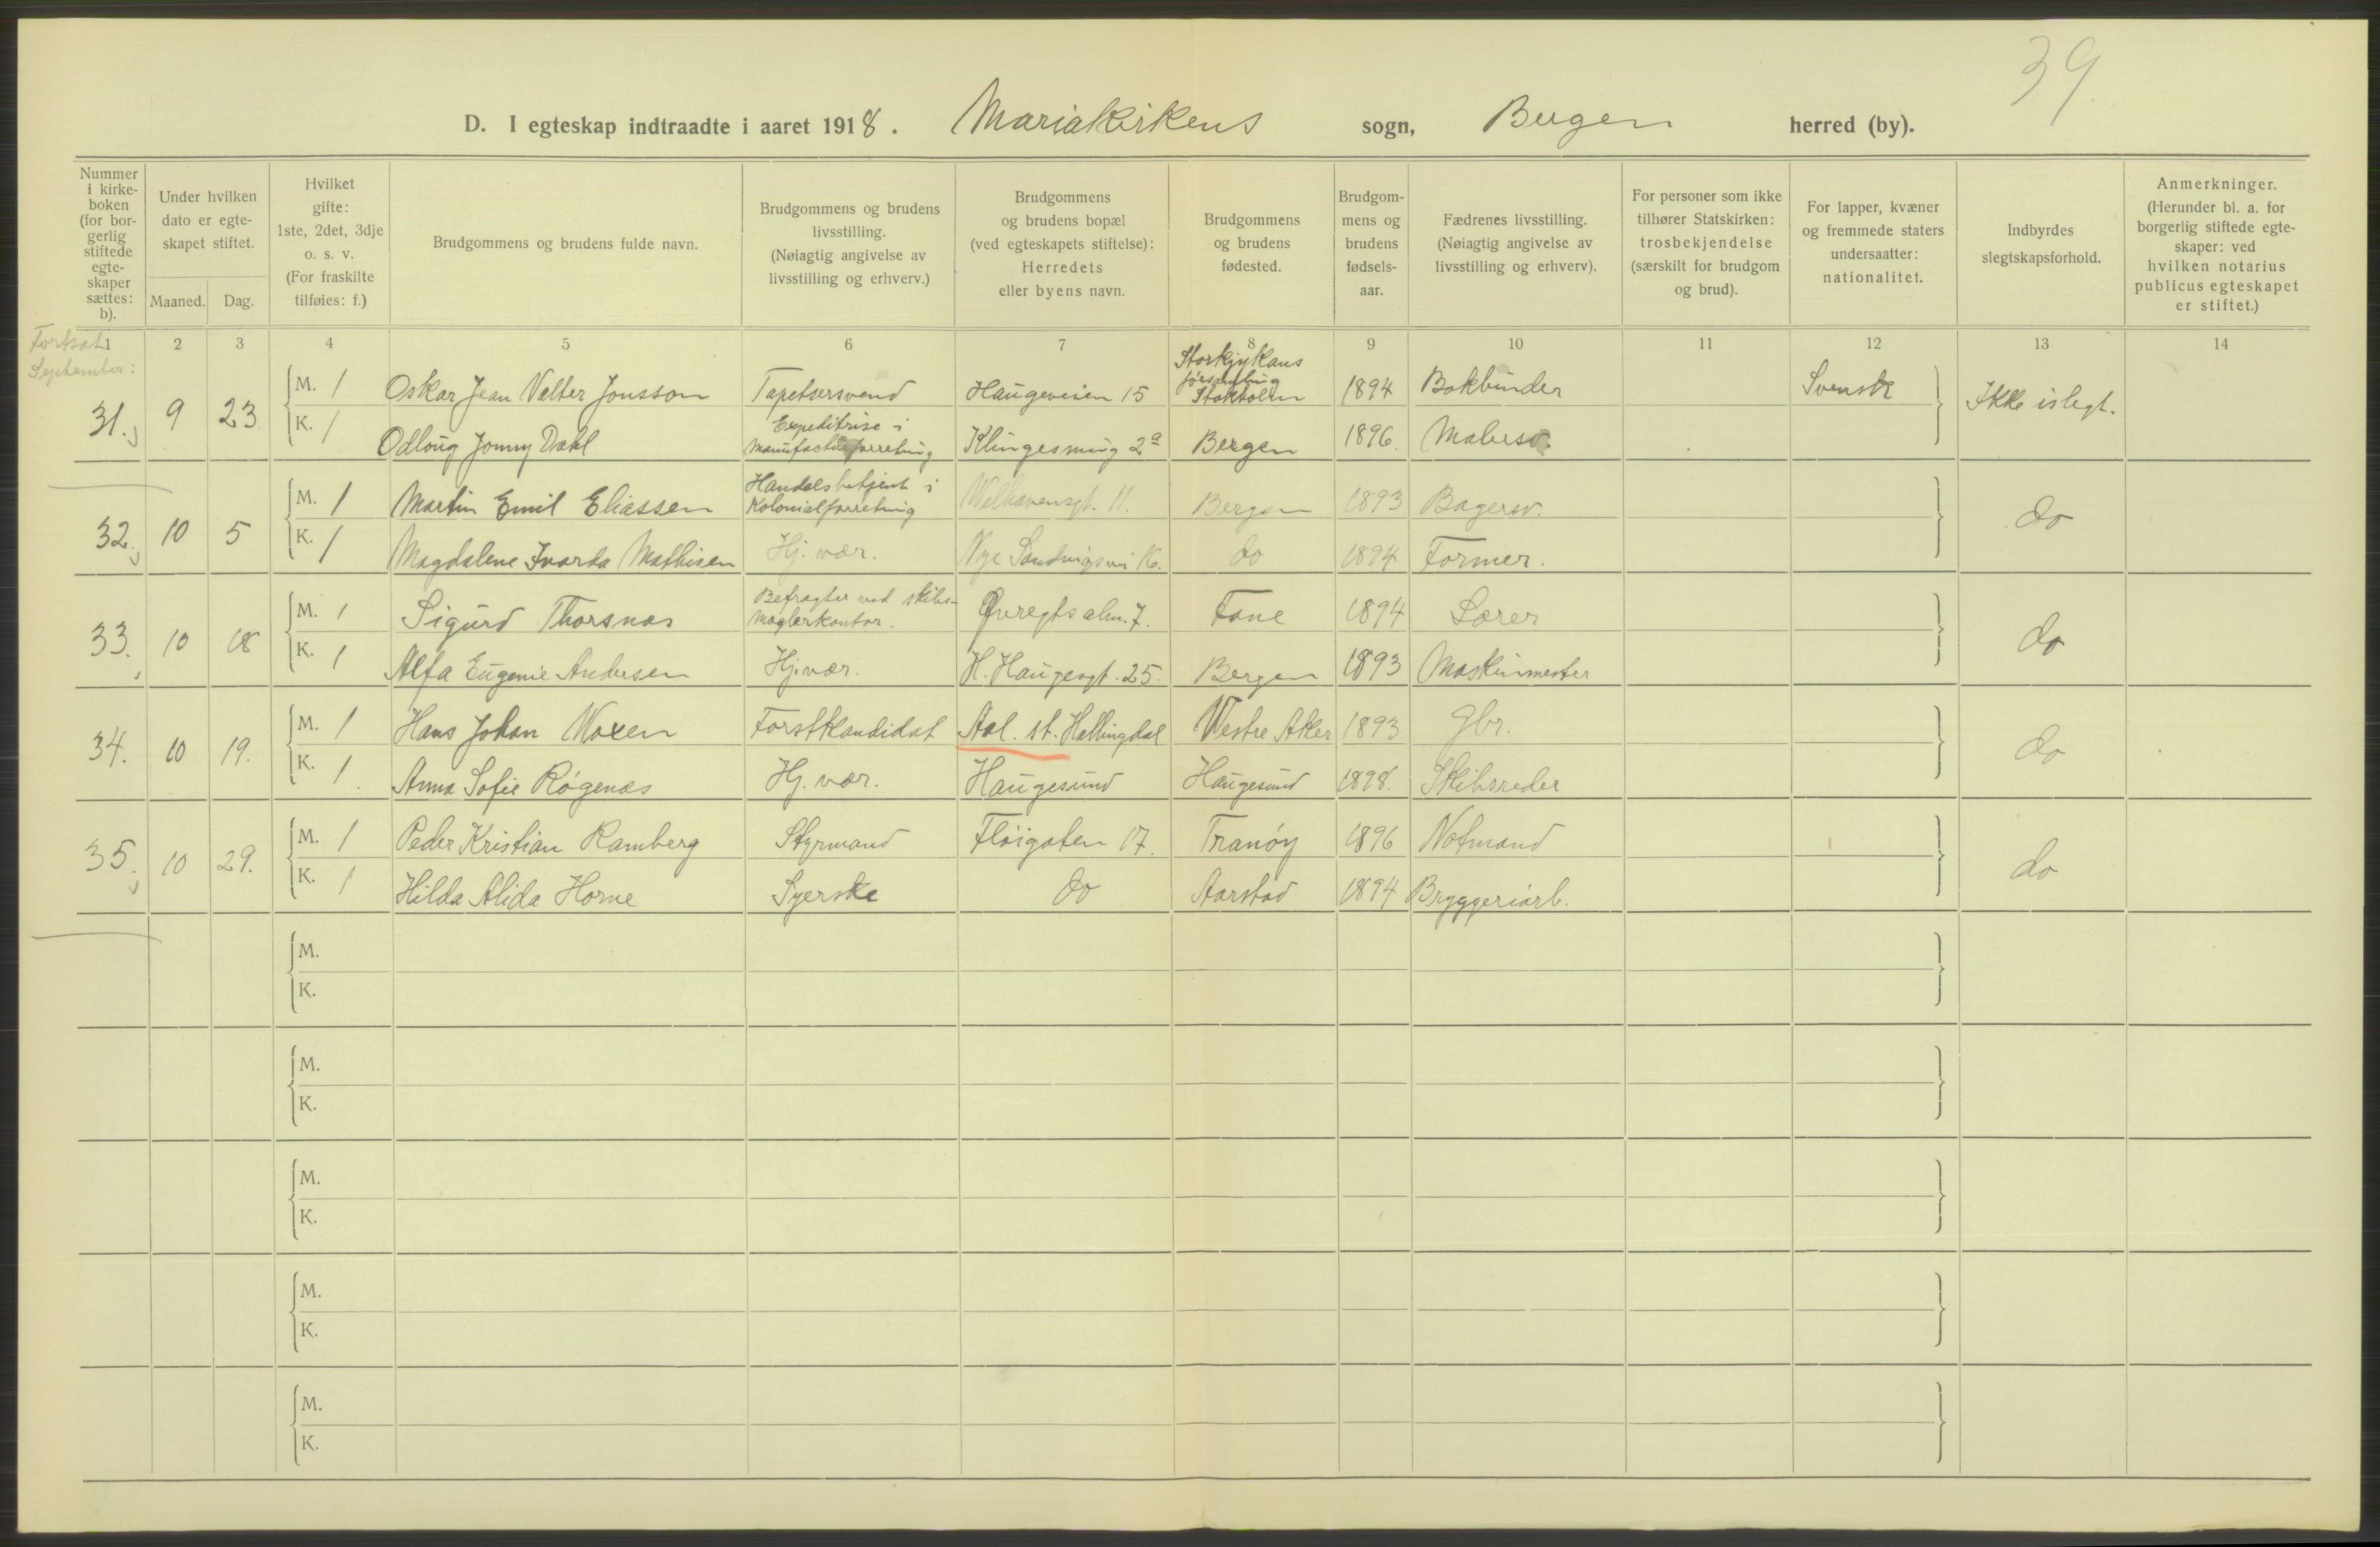 39.
D. I egteskap indtraadte i aaret 1918. Mariakirkens sogn, Bergen herred (by).
Nummer i kirkeboken (for borgerlig stiftede egteskaper sættes: b).
Under hvilken dato er egteskapet stiftet.
Maaned. Dag.
Hvilket gifte: 1ste, 2det, 3dje o. s. v. (For fraskilte tilføies: f.)
Brudgommens og brudens fulde navn.
Brudgommens og brudens livsstilling. (Nøiagtig angivelse av livsstilling og erhverv.)
Brudgommens og brudens bopæl (ved egteskapets stiftelse): Herredets eller byens navn.
Brudgommens og brudens fødested.
Brudgommens og brudens fødselsaar.
Fædrenes livsstilling. (Nøiagtig angivelse av livsstilling og erhverv).
For personer som ikke tilhører Statskirken: trosbekjendelse (særskilt for brudgom og brud).
For lapper, kvæner og fremmede staters undersaatter: nationalitet.
Indbyrdes slegtskapsforhold.
Anmerkninger. (Herunder bl. a. for borgerlig stiftede egteskaper: ved hvilken notarius publicus egteskapet er stiftet.)
1 2 3 4 5 6 7 8 9 10 11 12 13 14
Fortsat
September:
31. 9 23 M. 1 Oskar Jean Valter Jonsson Tapetsersvend Haugeveien 15 Storkjykans församling Stokholm 1894 Bokbinder Svensk Ikke i slegt.
K. 1 Odloug Jonny Dahl Expeditrise i Manufacturforretning Klingesmug 2a Bergen 1896. Malersv.
32. 10 5 M. 1 Martin Emil Eliassen Handelsbetjent i Kolonialforretning Welhavensgt. 11. Bergen 1893 Bagersv. do
K. 1 Magdalene Ivarda Mathisen Hj. vær. Nye Sandvigsvei 16. do 1894 Former.
33. 10 18 M. 1 Sigurd Thorsnæs Befragter ved skibsmæglerkontor. Øvregts alm. 7. Fane 1894 Lærer do
K. 1 Alfa Eugenie Andersen Hj. vær. H. Haugesgt. 25. Bergen 1893 Maskinmester
34. 10 19. M. 1 Hans Johan Woxen Forstkandidat Aal. st. Hallingdal Westre Aker 1893 Gbr. do
K. 1 Anna Sofie Røgenæs Hj. vær. Haugesund Haugesund 1898. Skibsreder
35. 10 29. M. 1 Peder Kristian Ramberg Styrmand Fløigaten 17. Tranøy 1896 Notmand do
K. 1 Hilda Alida Horne Syerske do Aarstad 1894 Bryggeriarb.
M.
K.
M.
K.
M.
K.
M.
K.
M.
K.